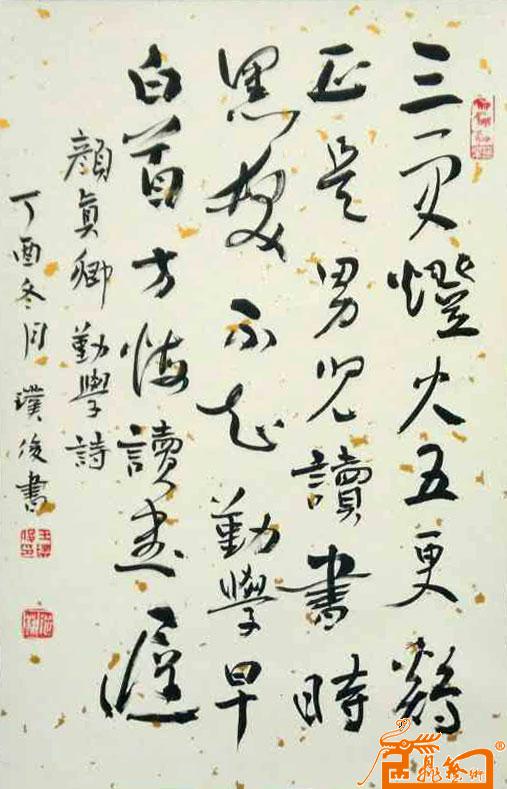 三更燈火五更鷄
正是男兒讀書時
黑髮不知勤學早
白首方悔讀書遲
顏真卿勤學詩
丁酉冬月璞俊書